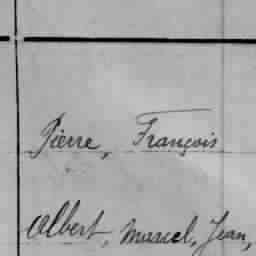 Pierre, François
Albert, Marcel, Jean,